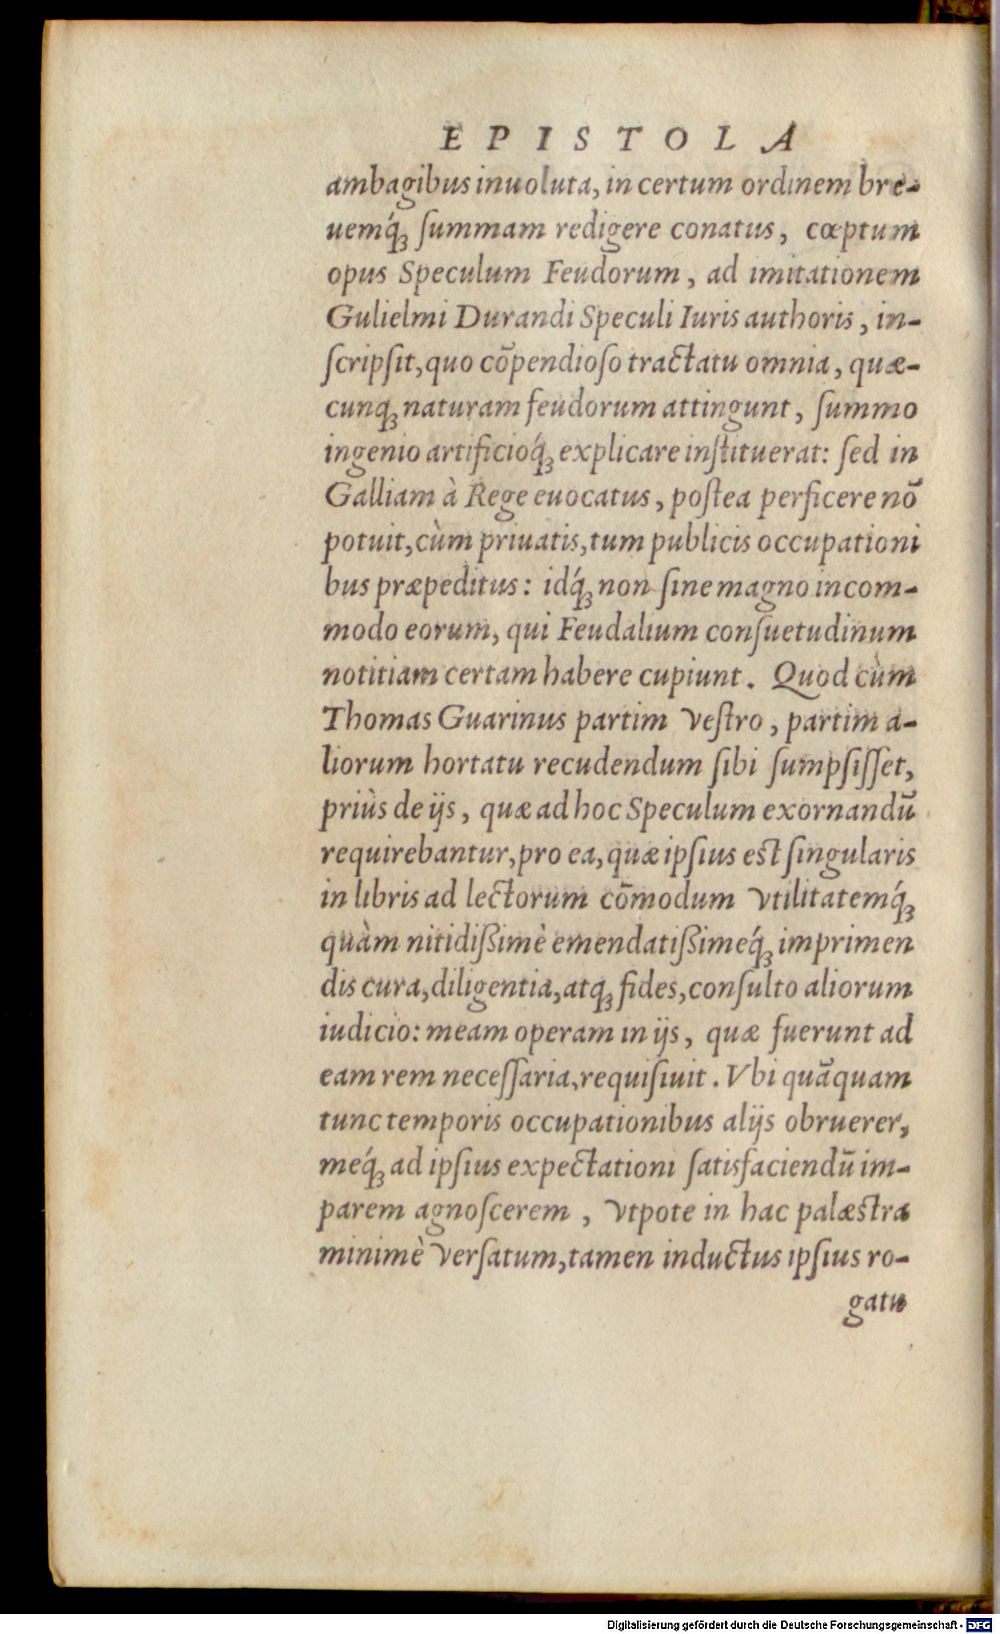 EPISTOLA
ambagibus inuoluta, in certum ordinem bre-
uemq́ꝫ ſummam redigere conatus, cœptum
opus Speculum Feudorum, ad imitationem
Gulielmi Durandi Speculi Iuris authoris, in-
ſcripſit, quo cōpendioſo tractatu omnia, quæ-
cunqꝫ naturam feudorum attingunt, ſummo
ingenio artificioq́ꝫ explicare inſtituerat: ſed in
Galliam à Rege euocatus, poſtea perficere nō
potuit, cùm priuatis, tum publicis occupationi
bus præpeditus: idq́ꝫ non ſine magno incom-
modo eorum, qui Feudalium conſuetudinum
notitiam certam habere cupiunt. Quod cùm
Thomas Guarinus partim veſtro, partim a-
liorum hortatu recudendum ſibi ſumpſiſſet,
priùs de ijs, quæ ad hoc Speculum exornandū
requirebantur, pro ea, quæ ipſius eſt ſingularis
in libris ad lectorum cōmodum vtilitatemq́ꝫ
quàm nitidißimè emendatißimeq́ꝫ imprimen
dis cura, diligentia, atqꝫ fides, conſulto aliorum
iudicio: meam operam in ijs, quæ fuerunt ad
eam rem neceſſaria, requiſiuit. Vbi quāquam
tunc temporis occupationibus alijs obruerer,
meq́ꝫ ad ipſius expectationi ſatisfaciendū im-
parem agnoſcerem, vtpote in hac palæſtra
minimè verſatum, tamen inductus ipſius ro-
gatu
Digitalisierung gefördert durch die Deutsche Forschungsgemeinschaft - DFG